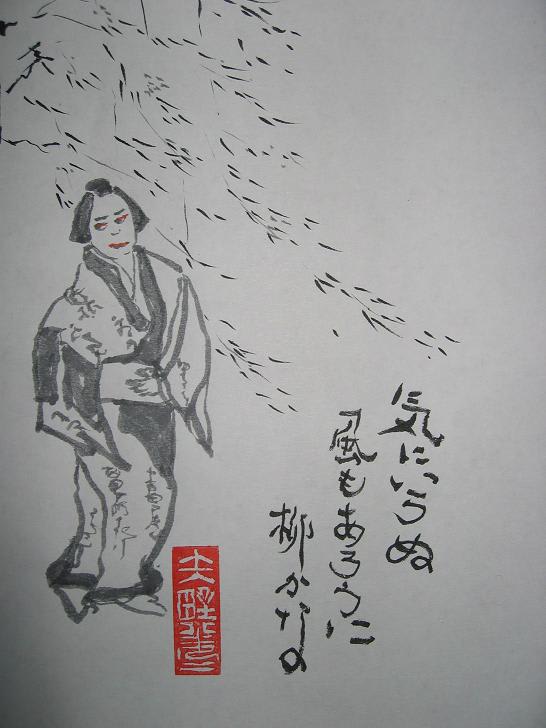 気にいらぬ
風もあろうに
柳かな